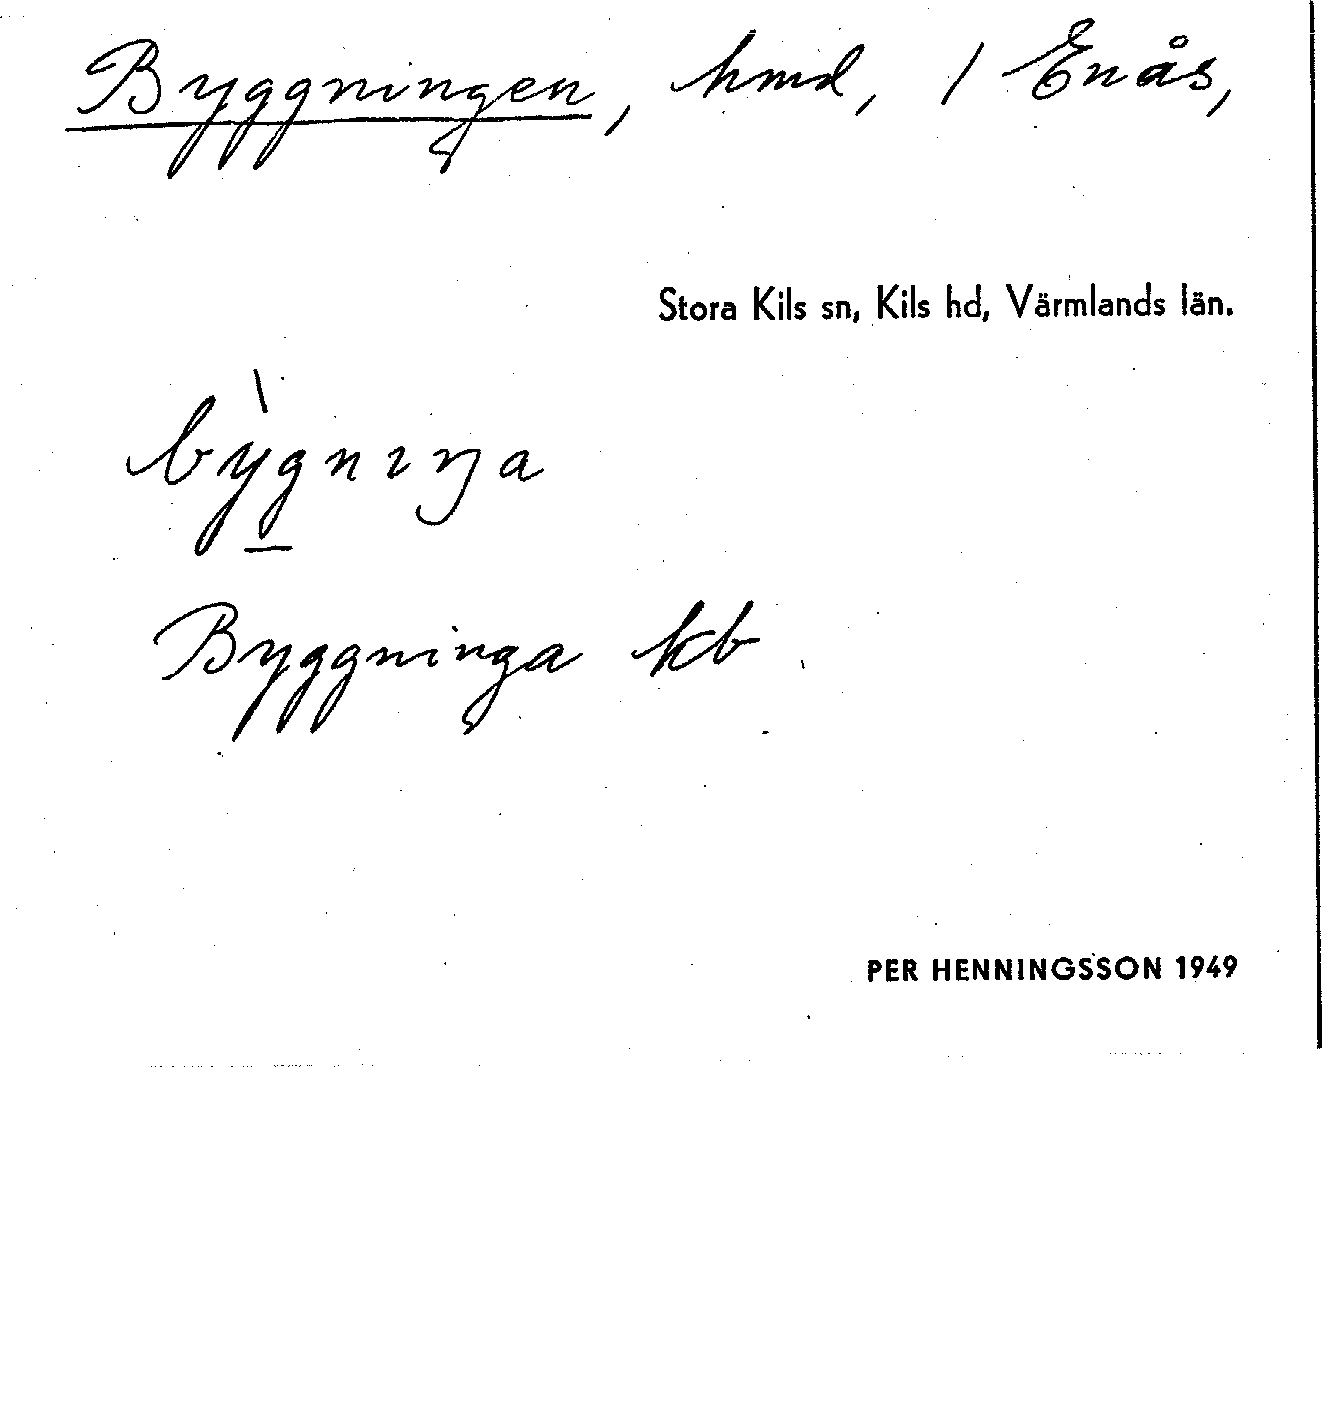 Byggningen, hmd, / Enås,
Stora Kils sn, Kils hd, Värmlands län.
bỳgnıŋa
Byggninga kb
PER HENNINGSSON 1949